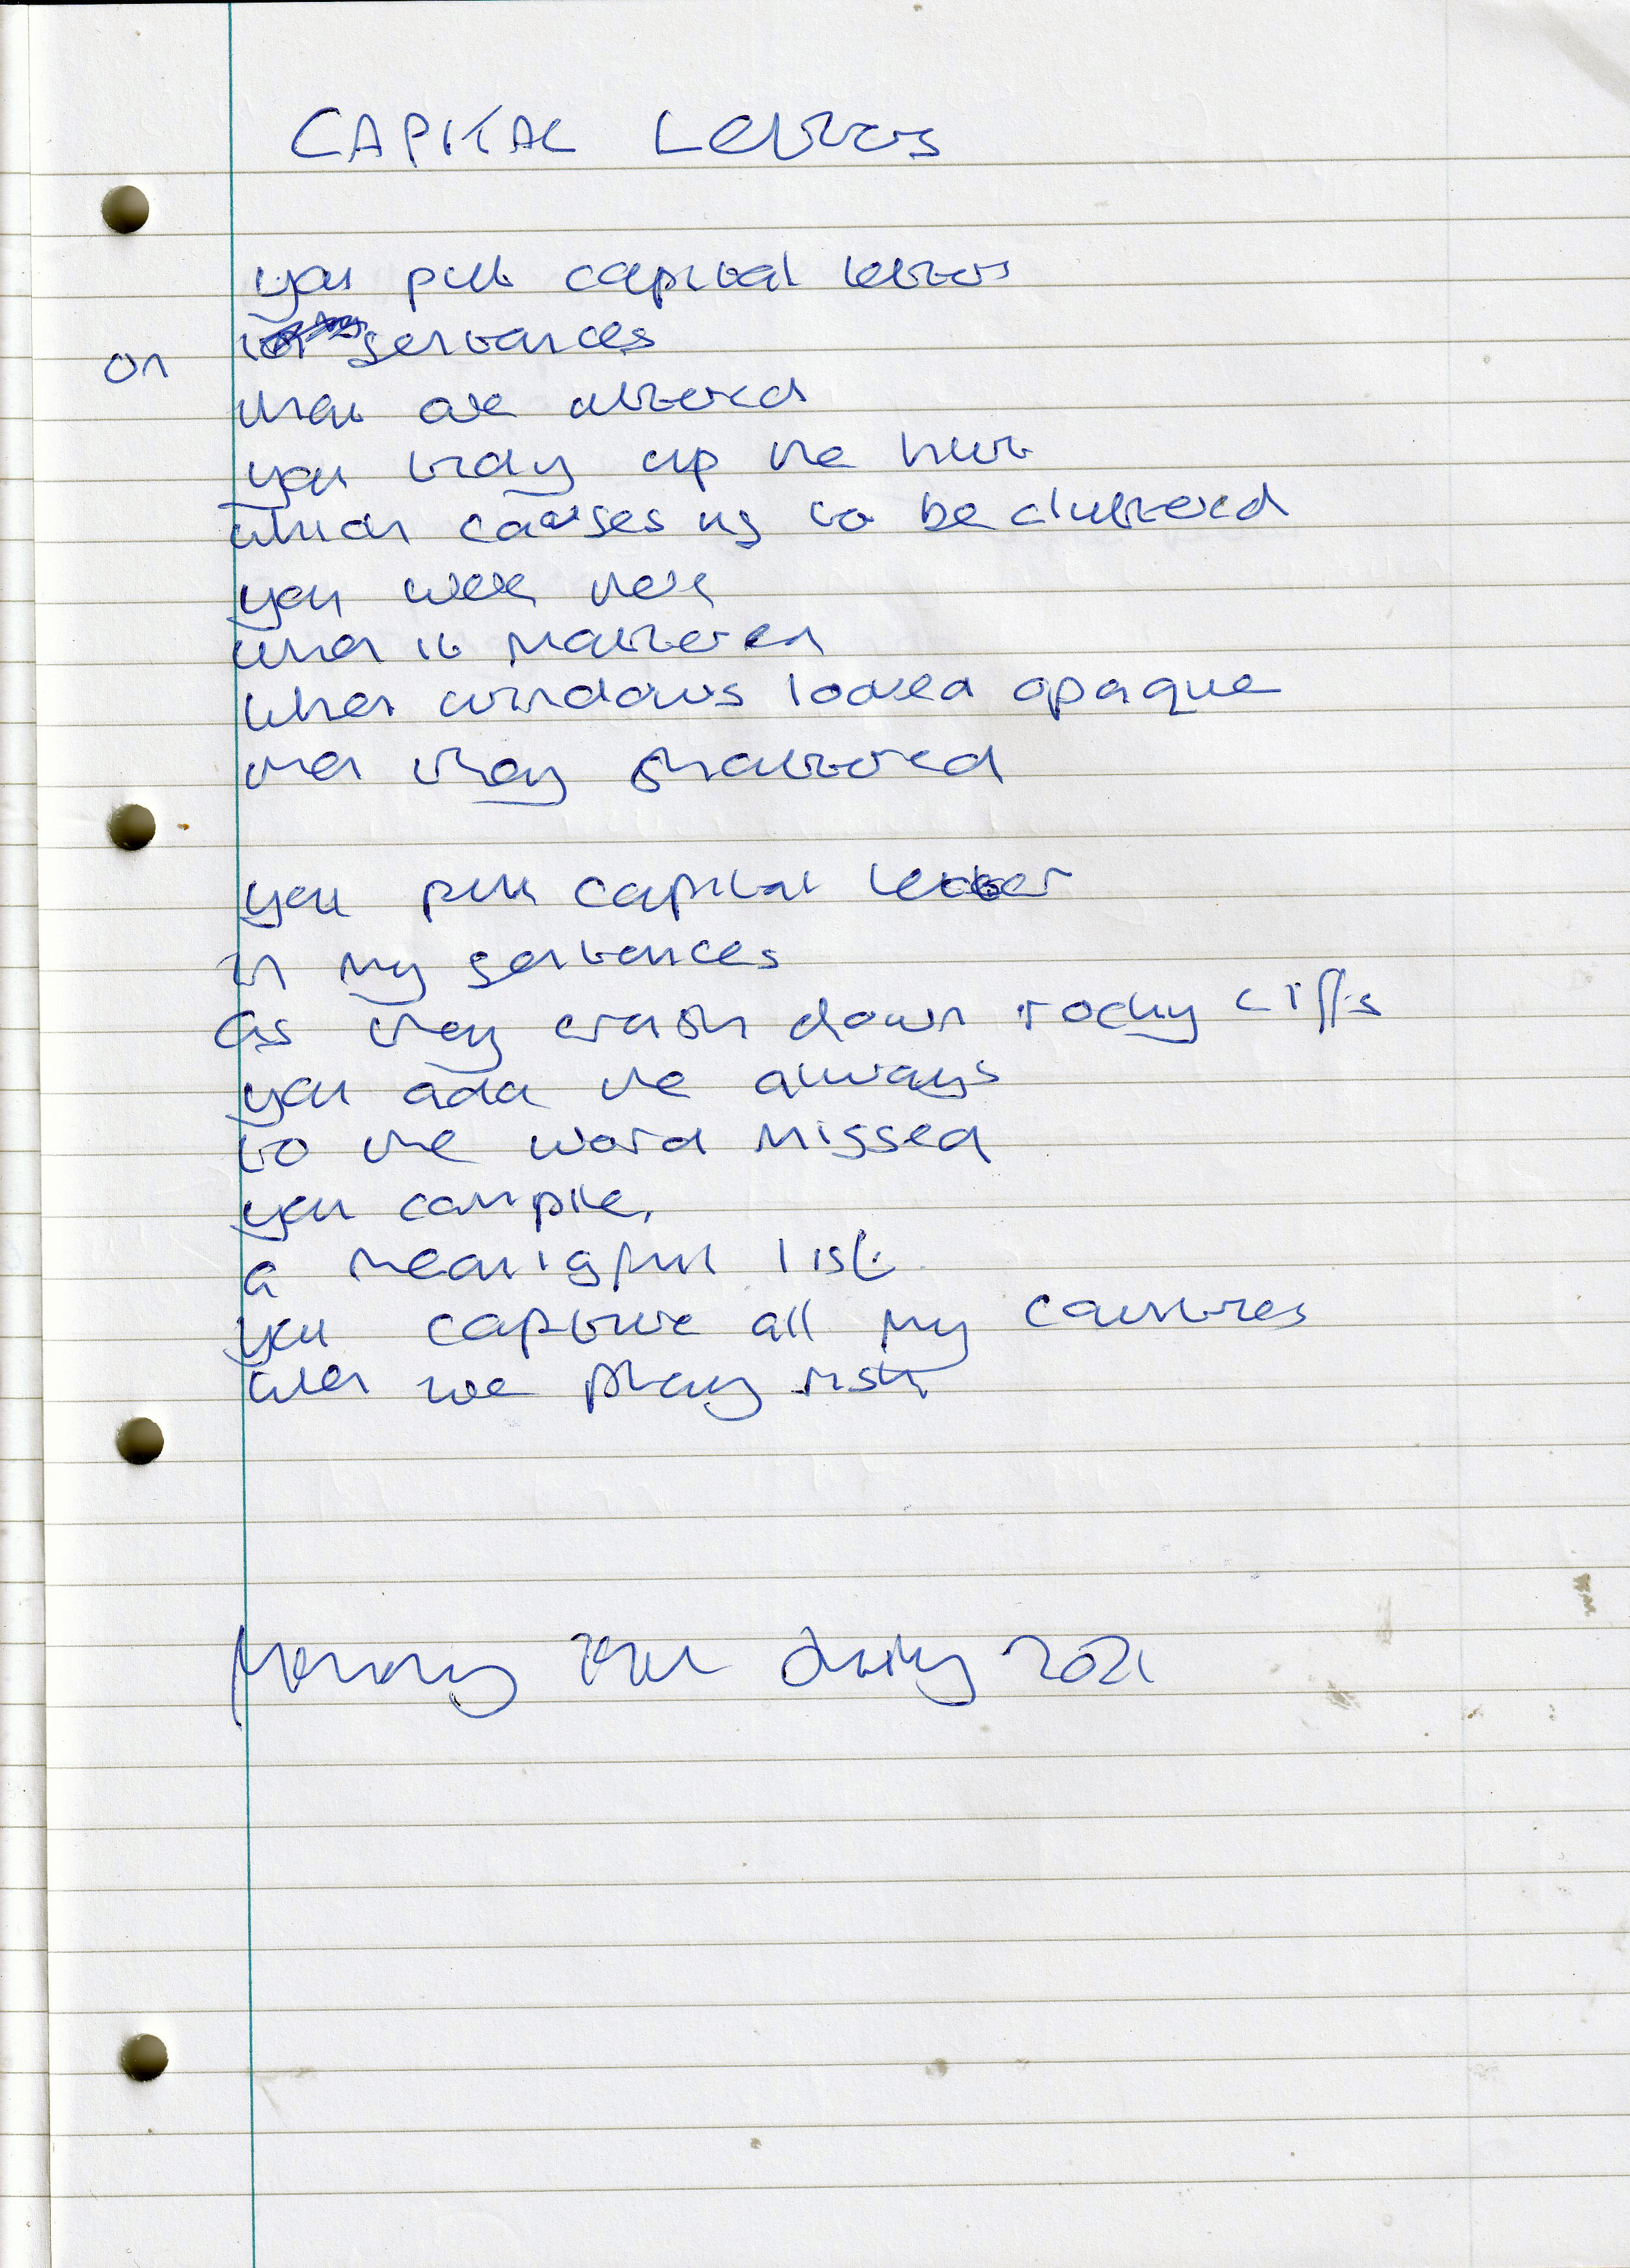 CAPITAL Letters
you put capital letters
on sentences
that are uttered
you tidy up the hurt
which causes us to be cluttered
you were there
when it mattered
when windows looked opaque
then they shattered
you put capital letter
in my sentences
as they crash down rocky cliffs
you add the always
to the word missed
you compile,
a meanigful list.
you capture all my countries
when we play risk
2021